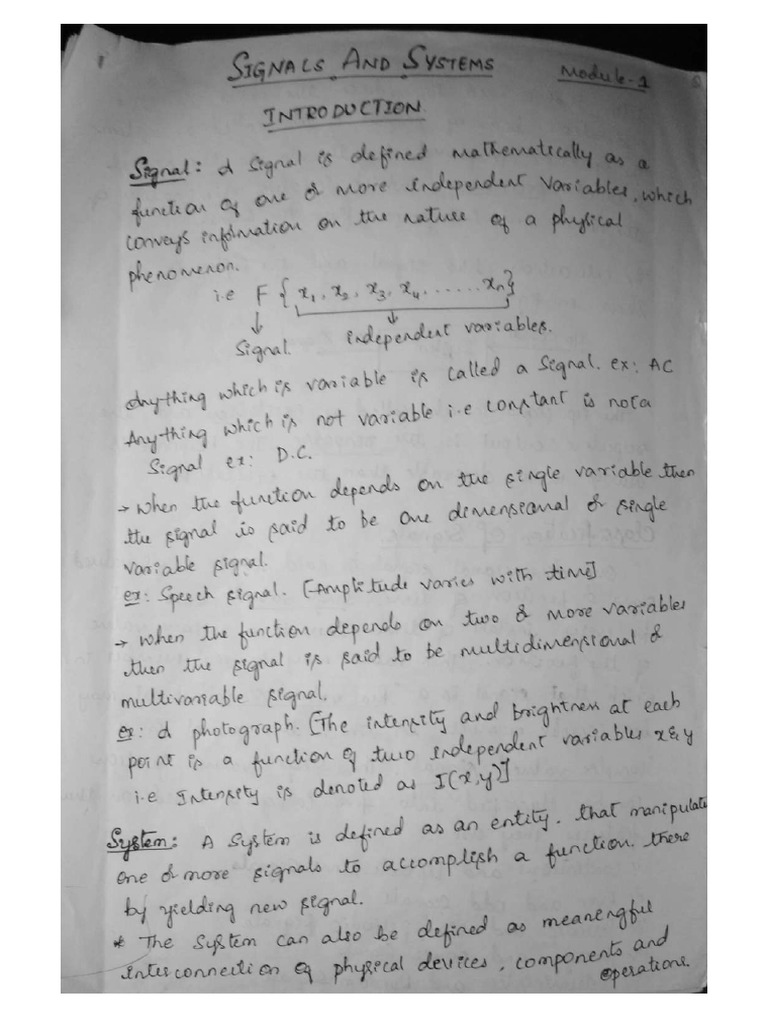 SIGNALS AND SYSTEMS Module-1
INTRODUCTION
Signal: A Signal is defined mathematically as a
function of one or more independent variables, which
conveys information on the nature of a physical
phenomenon.
i.e F { x1, x2, x3, x4, ...... xn}
Signal. independent variables.
Anything which is variable is called a Signal. ex: AC
Anything which is not variable i.e constant is not a
Signal ex: D.C.
→ When the function depends on the single variable then
the signal is said to be one dimensional or single
variable signal.
ex: Speech signal. [Amplitude varies with time]
→ When the function depends on two or more variables
then the signal is said to be multidimensional or
multivariable signal.
ex: A photograph. [The intensity and brightness at each
point is a function of two independent variables x & y
i.e Intensity is denoted as I(x,y)]
System: A System is defined as an entity. that manipulate
one or more signals to accomplish a function. there
by yielding new signal.
* The System can also be defined as meaningful
interconnection of physical devices, components and
operations.